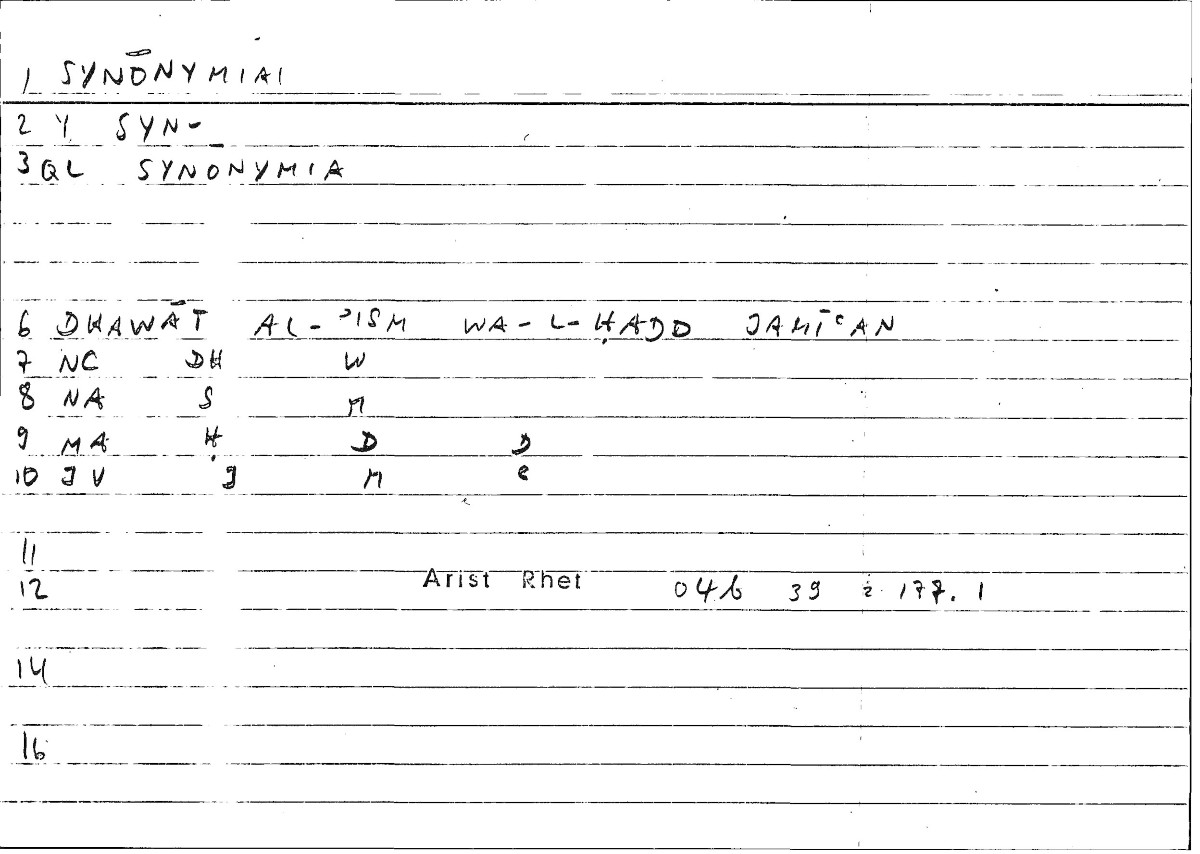 1 SYNŌNYMIAI
2 Y SYN-
3 QL SYNONYMIA
6 DHAWĀT AL-ʾISM WA-L-ḤADD JAMĪʿAN
7 NC DH W
8 NA S M
9 MA Ḥ D D
10 JV J M ʿ
11
12 Arist Rhet 04b 39 ż 177.1
14
16